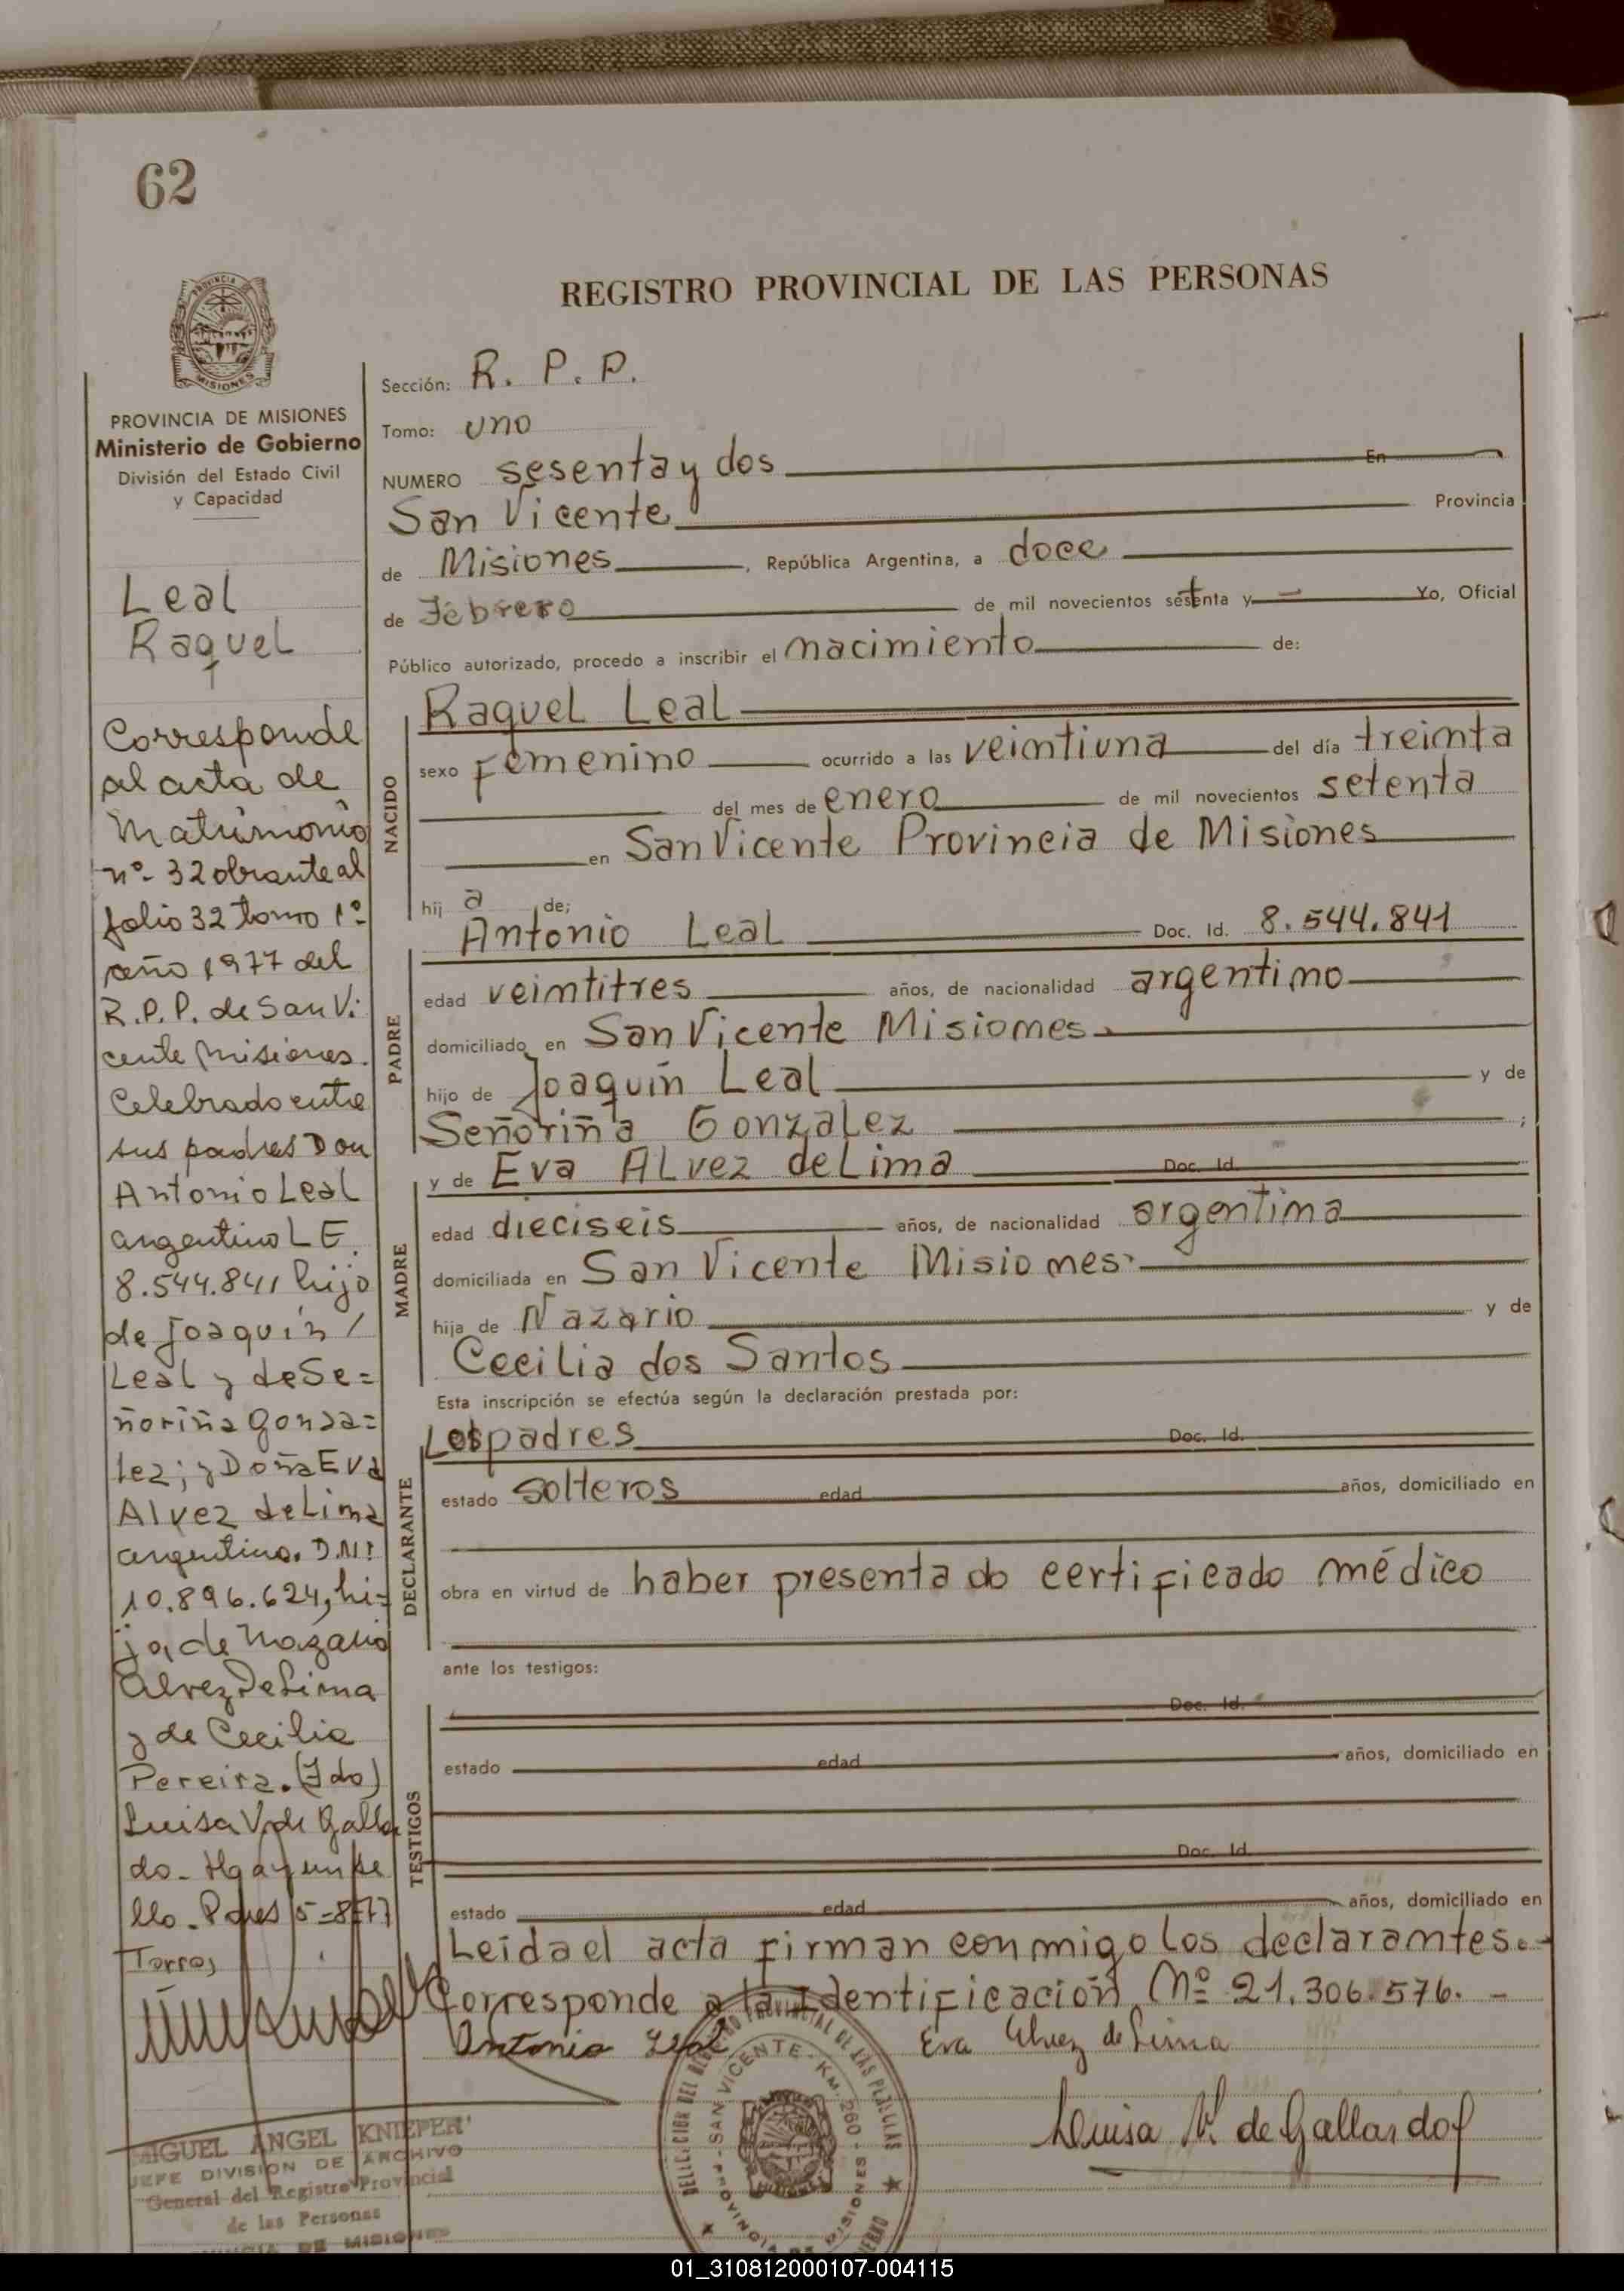 62
REGISTRO PROVINCIAL DE LAS PERSONAS
MISIONES
PROVINCIA DE MISIONES
Ministerio de Gobierno
División del Estado Civil
y Capacidad
Leal
Raquel
Corresponde
al acta de
Matrimonio
nº- 32 obrante al
folio 32 tomo 1º
año 1977 del
R.P.P. de San Vi
cente Misiones.
Celebrado entre
sus padres Don
Antonio Leal
argentino L E.
8.544.841 hijo
de Joaquín /
Leal y de Se=
ñoriña Gonza=
lez; y Doña Eva
Alvez de Lima
argentina. D.N.I
10.896.624, hi=
ja, de Nazario
Alvez De Lima
y de Cecilia
Pereira. (Fdo)
Luisa V. de Galla
do. Hay un se
llo. Pdas 5-8-77
Torres
MIGUEL ANGEL KNIEPER
JEFE DIVISION DE ARCHIVO
General del Registro Provincial
de las Personas
PROVINCIA DE MISIONES
Sección: R. P. P.
Tomo: uno
NUMERO sesenta y dos En
San Vicente Provincia
de Misiones, República Argentina, a doce
de Febrero de mil novecientos setenta y - Yo, Oficial
Público autorizado, procedo a inscribir el nacimiento de:
NACIDO
Raquel Leal
sexo femenino ocurrido a las veintiuna del día treinta
del mes de enero de mil novecientos setenta
en San Vicente Provincia de Misiones
hij a de;
PADRE
Antonio Leal Doc. Id. 8.544.841
edad veintitres años, de nacionalidad argentino
domiciliado en San Vicente Misiones.
hijo de Joaquín Leal y de
Señoriña Gonzalez ;
MADRE
y de Eva Alvez de Lima Doc. Id.
edad dieciseis años, de nacionalidad argentina
domiciliada en San Vicente Misiones.
hija de Nazario y de
Cecilia dos Santos
Esta inscripción se efectúa según la declaración prestada por:
DECLARANTE
Los padres Doc. Id.
estado solteros edad años, domiciliado en
obra en virtud de haber presentado certificado médico
ante los testigos:
TESTIGOS
Doc. Id.
estado edad años, domiciliado en
Doc. Id.
estado edad años, domiciliado en
Leída el acta firman conmigo los declarantes.-
Corresponde a la Identificación Nº 21.306.576. -
Antonio Leal Eva Alvez de Lima
Luisa V. de Gallardo
SAN VICENTE - KM. 260 - PROVINCIA DE MISIONES
01_310812000107-004115